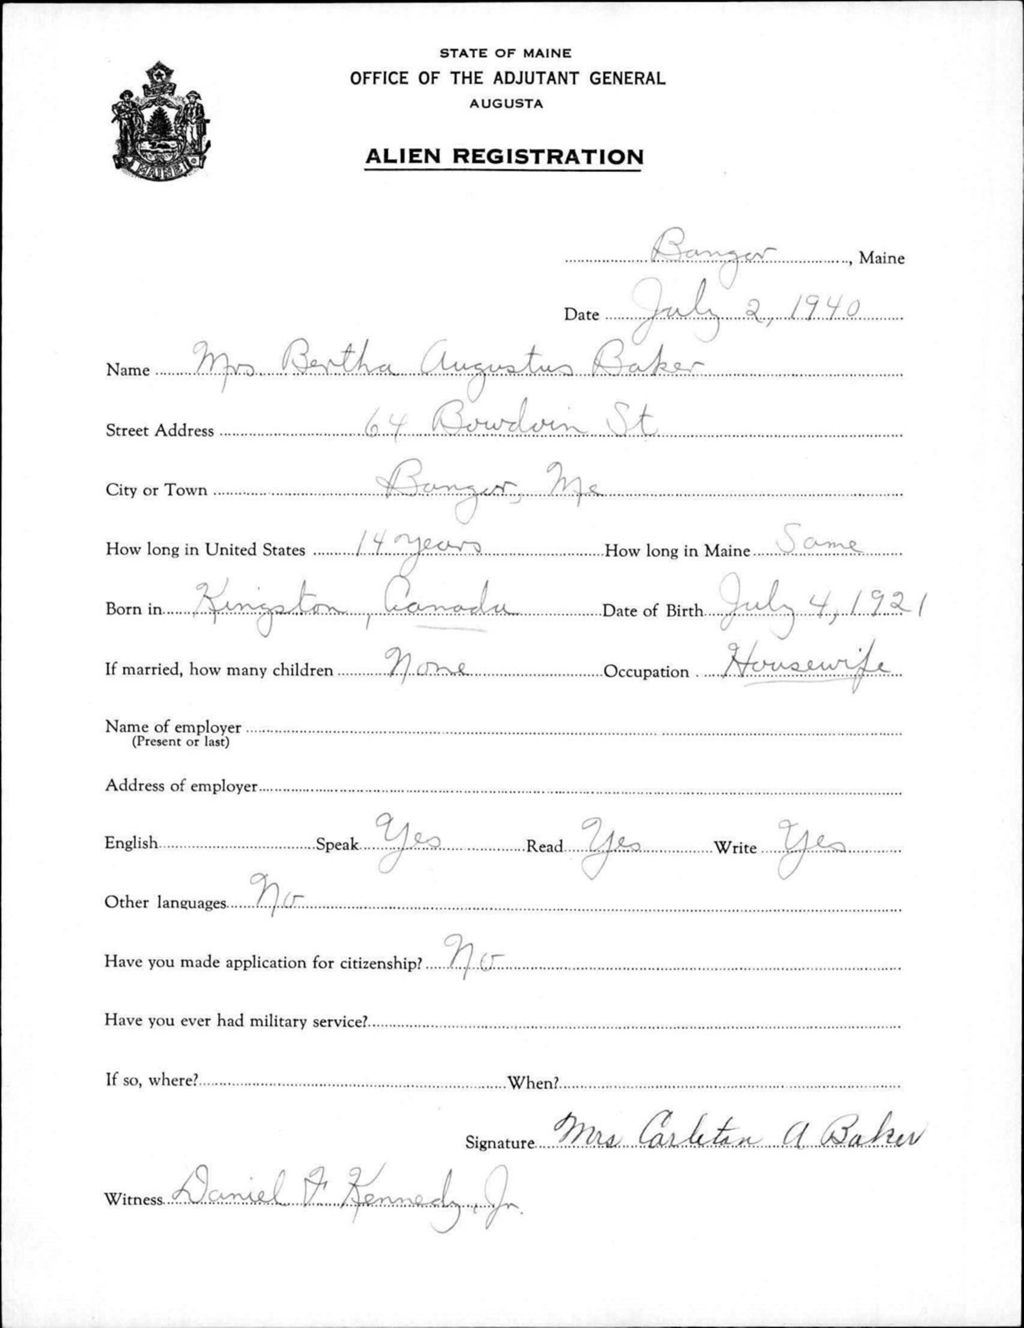 STATE OF MAINE
OFFICE OF THE ADJUTANT GENERAL
AUGUSTA
ALIEN REGISTRATION
MAINE
Bangor, Maine
Date July 2, 1940
Name Mrs. Bertha Augustus Baker
Street Address 64 Bowdoin St
City or Town Bangor, Me
How long in United States 14 years How long in Maine Same
Born in Kingston, Canada Date of Birth July 4, 1921
If married, how many children None Occupation Housewife
Name of employer
(Present or last)
Address of employer
English Speak Yes Read Yes Write Yes
Other languages No
Have you made application for citizenship? No
Have you ever had military service?
If so, where? When?
Signature Mrs Carleton A Baker
Witness Daniel F Kennedy, Jr.